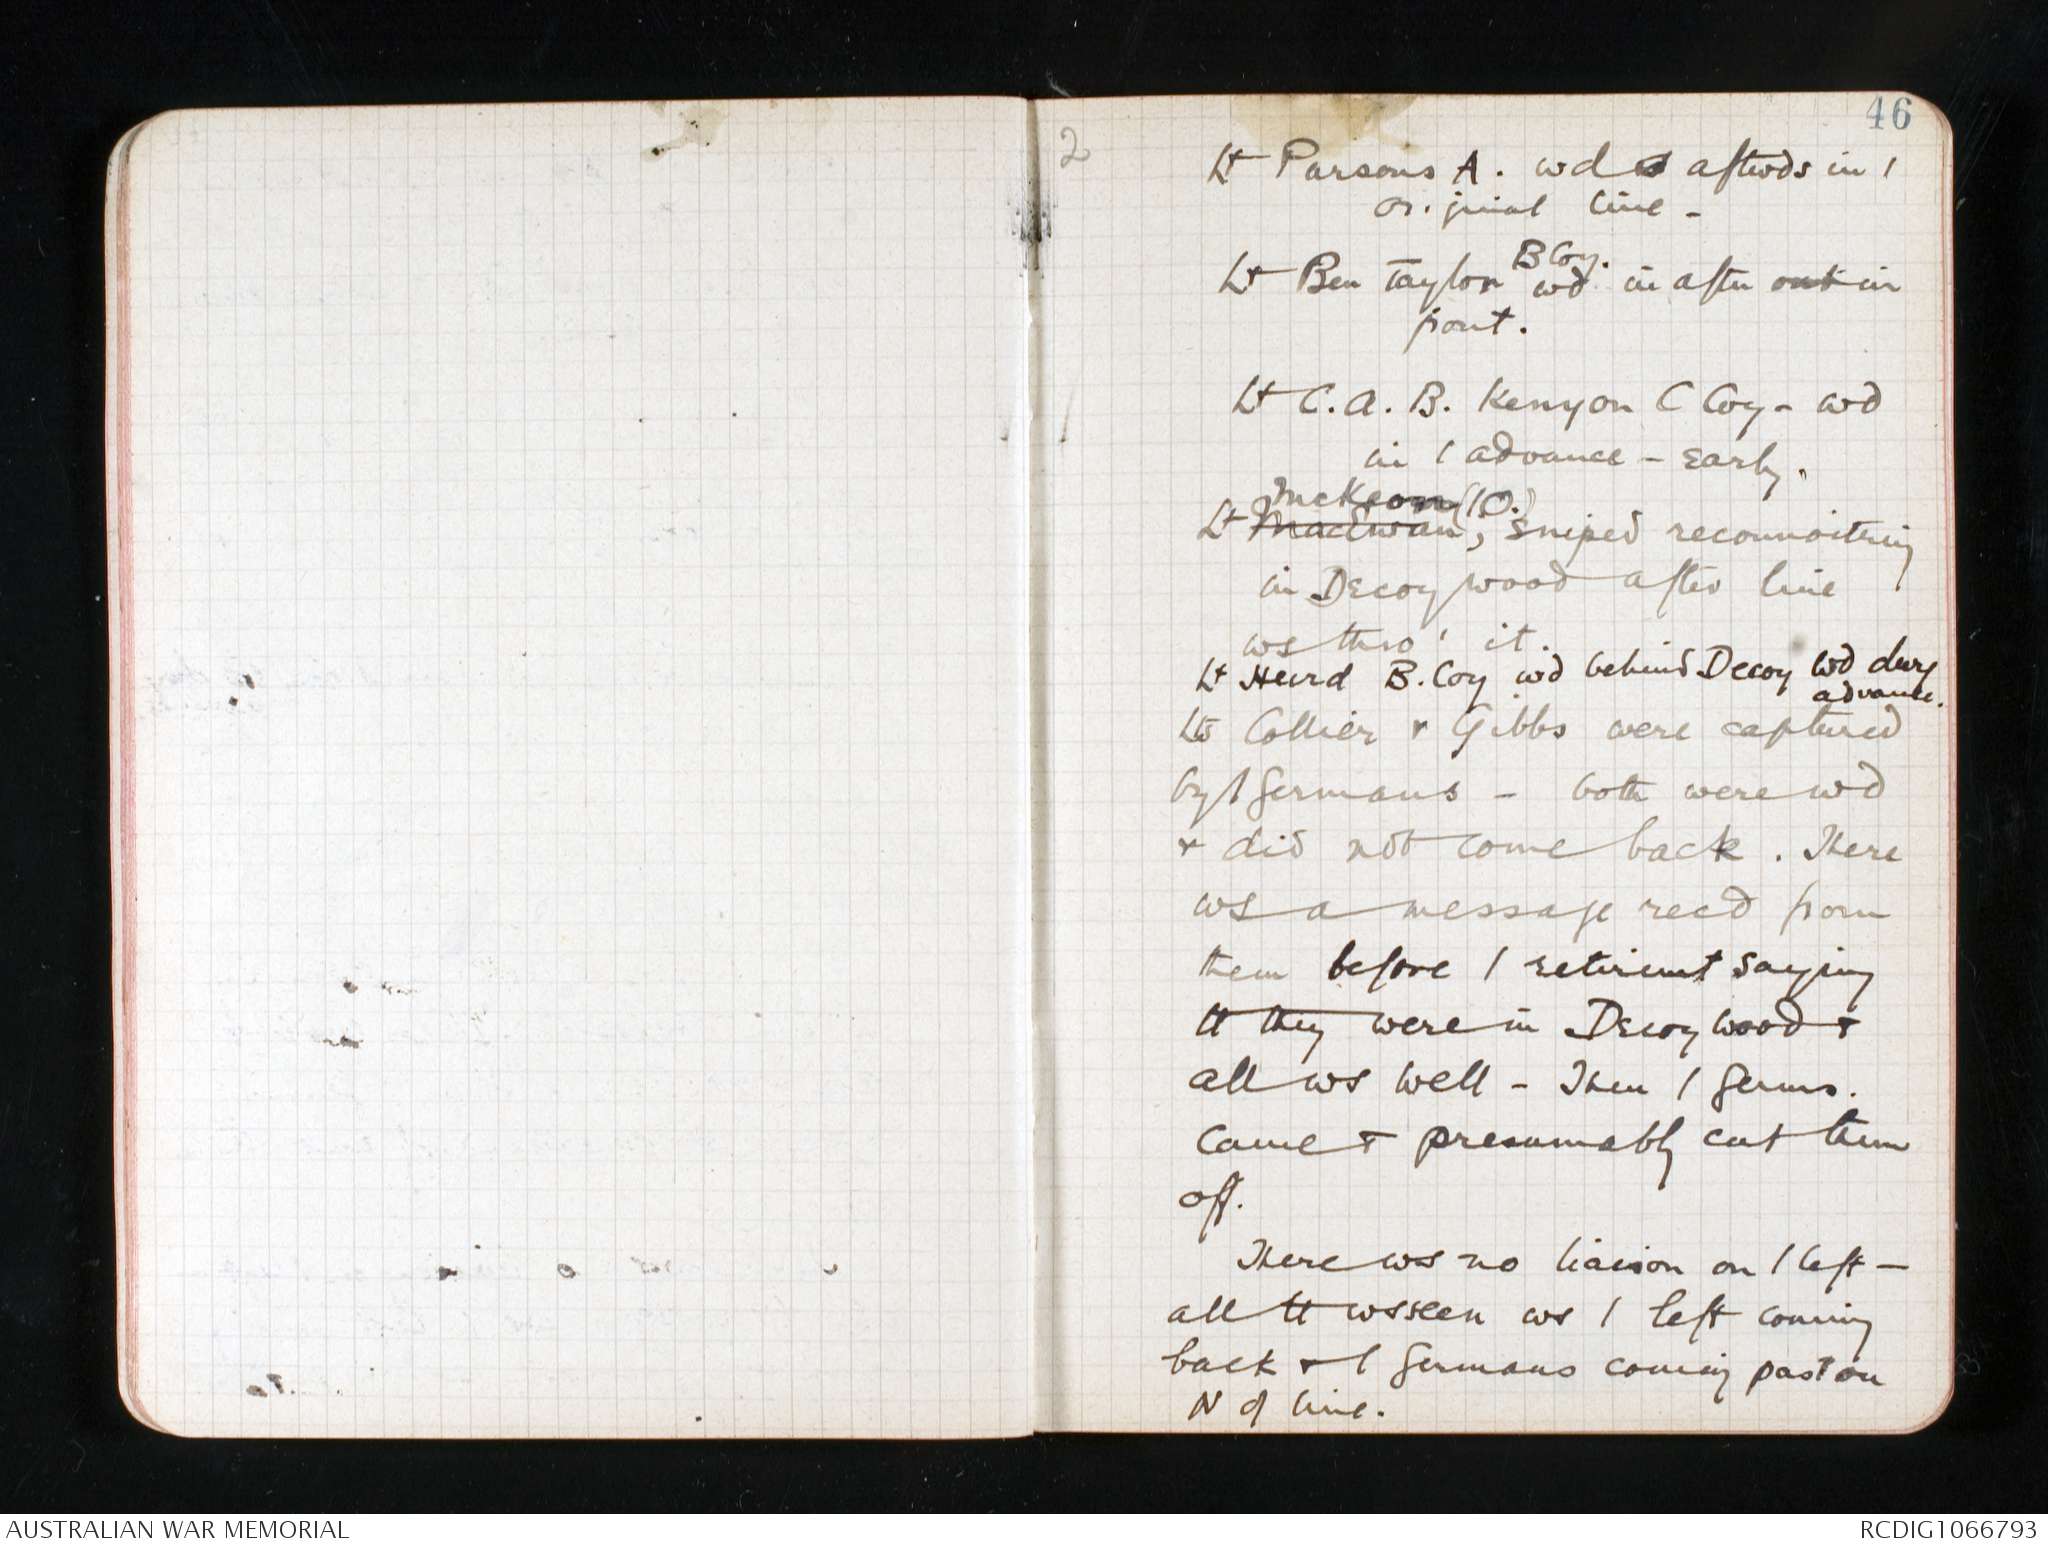 46
2
Lt Parsons A. wd aftwds in /
original line -
Lt Ben Taylor B Coy. wd in after out in
front.
Lt C. A. B. Kenyon C Coy - wd
in / advance - early.
McKeon (IO.)
Lt MacEwan, sniped reconnoitring
in Decoy wood after line
ws thro' it.
Lt Heurd B. Coy wd behind Decoy Wd durg
advance.
Lts Collier & Gibbs were captured
by / Germans - both were wd
& did not come back. There
ws a message recd from
them before / retiremt saying
tt they were in Decoy wood &
all ws well - Then / Germs.
came & presumably cut them
off.
There ws no liaison on / left -
all tt ws seen ws / left coming
back & / Germans coming past on
N of line.
AUSTRALIAN WAR MEMORIAL
RCDIG1066793